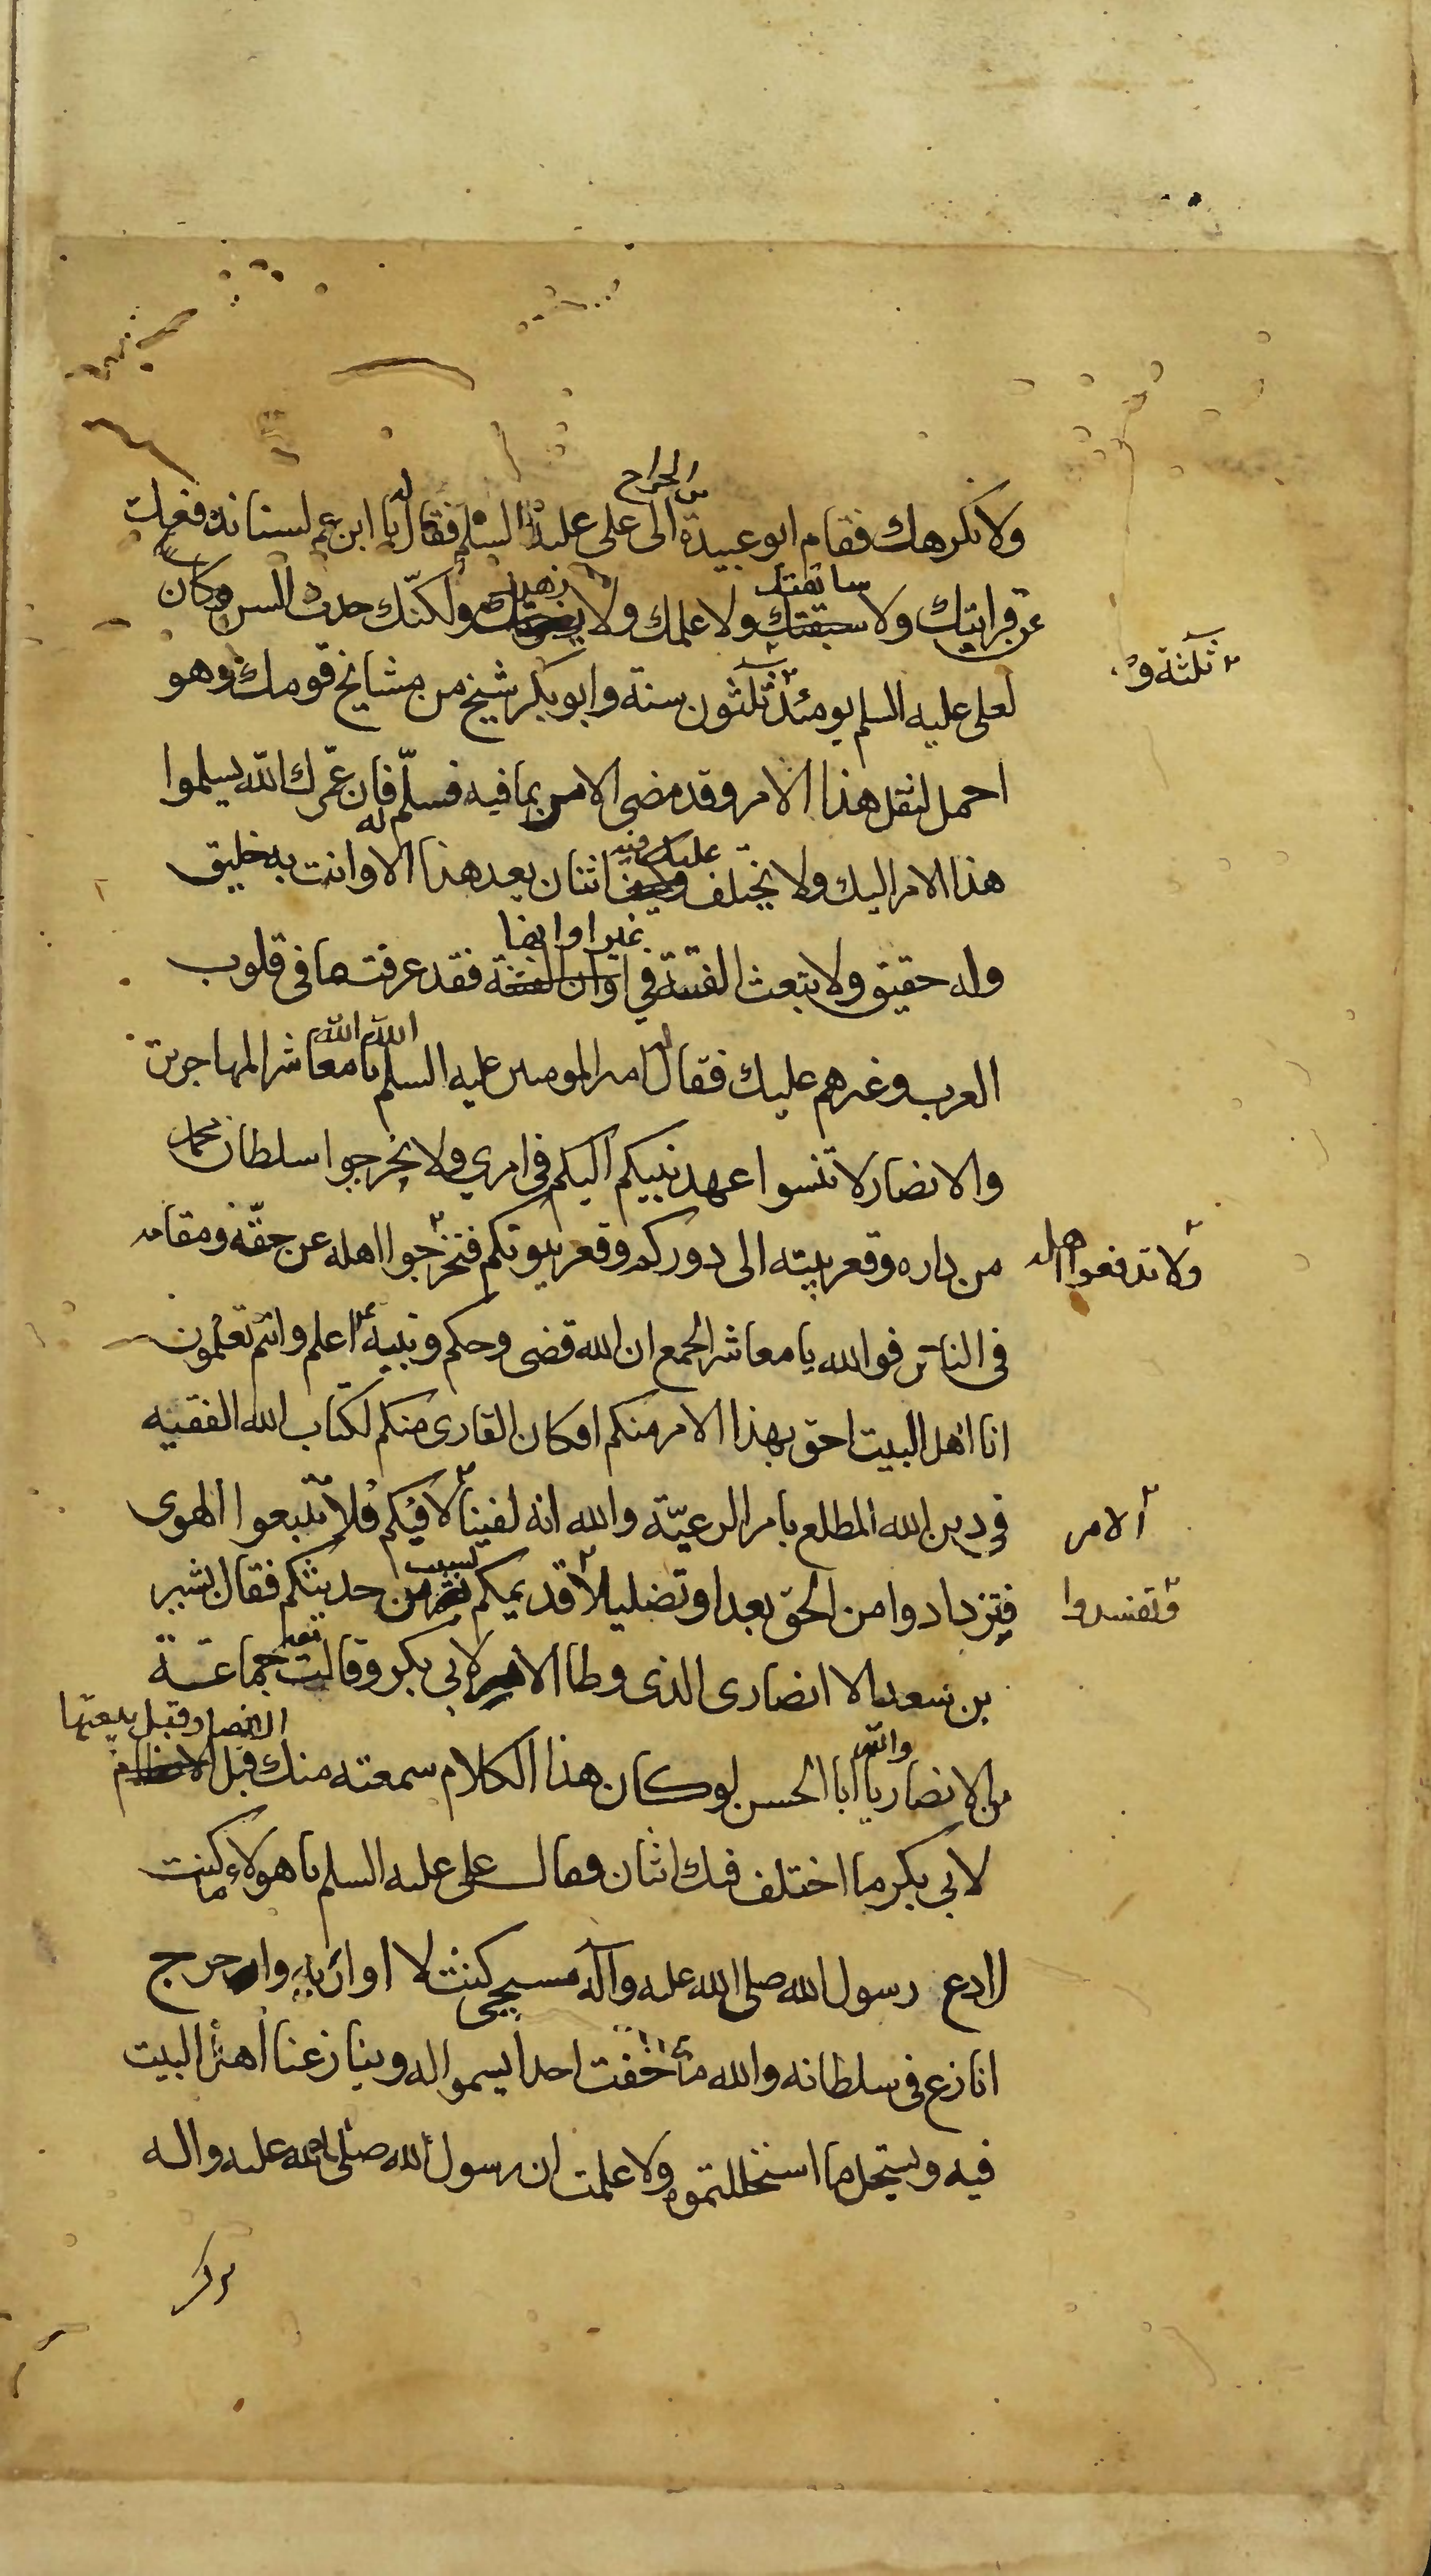 بن الجراح
ولا نكرهك فقام ابو عبيدة الى علي عليه السلم فقال له يا ابن عم لسنا ندفع
عن قرابتك ولا سابقتك ولا علمك ولا ولكنّك حدث السن وكان
ثلثة و
لعلي عليه السلم يومئذ ثلثون سنة وابو بكر شيخ من مشايخ قومك وهو
احمل لثقل هذا الامر وقد مضى الامر بما فيه فسلّم له فان عمّرك الله يسلموا
هذا الامر اليك ولا يختلف عليك فيه اثنان بعد هذا الا وانت به خليق
غير اوانها
وله حقيق ولا تبعث الفتنة في اوان الفتنة فقد عرفت ما في قلوب
العرب وغيرهم عليك فقال امير المومنين عليه السلم يا معاشر المهاجرين الله الله
والانصار لا تنسوا عهد نبيكم اليكم في امري ولا تخرجوا سلطان محمد
من داره وقعر بيته الى دوركم وقعر بيوتكم فتخرجوا اهله عن حقّه ومقامه
ولا تدفعوا اهله
في الناس فوالله يا معاشر الجمع ان الله قضى وحكم ونبيه اعلم وانتم تعلمون
انا اهل البيت احق بهذا الامر منكم افكان القارى منكم لكتاب الله الفقيه
في دين الله المطلع بامر الرعيّة والله انه لفينا لا فيكم فلا تتبعوا الهوى
الامر
فتزدادوا من الحق بعدا وتضليلا قديمكم من حديثكم فقال بشير
وتفسدوا
بن سعد الانصارى الذى وطا الامر لابي بكر وقالت جماعة
من الانصار يا ابا الحسن والله لو كان هذا الكلام سمعته منك قبل
الانصار قبل بيعتها
لابي بكر ما اختلف فيك اثنان فقال علي عليه السلم يا هولاء كنت
ادع رسول الله صلى الله عليه وآله مسجى كنت لا اواريه واخرج
انازع في سلطانه والله ما خفت احدا يسموا له وينازعنا اهل البيت
فيه ويستحل ما استحللتموه ولا علمت ان رسول الله صلى الله عليه واله
ترك